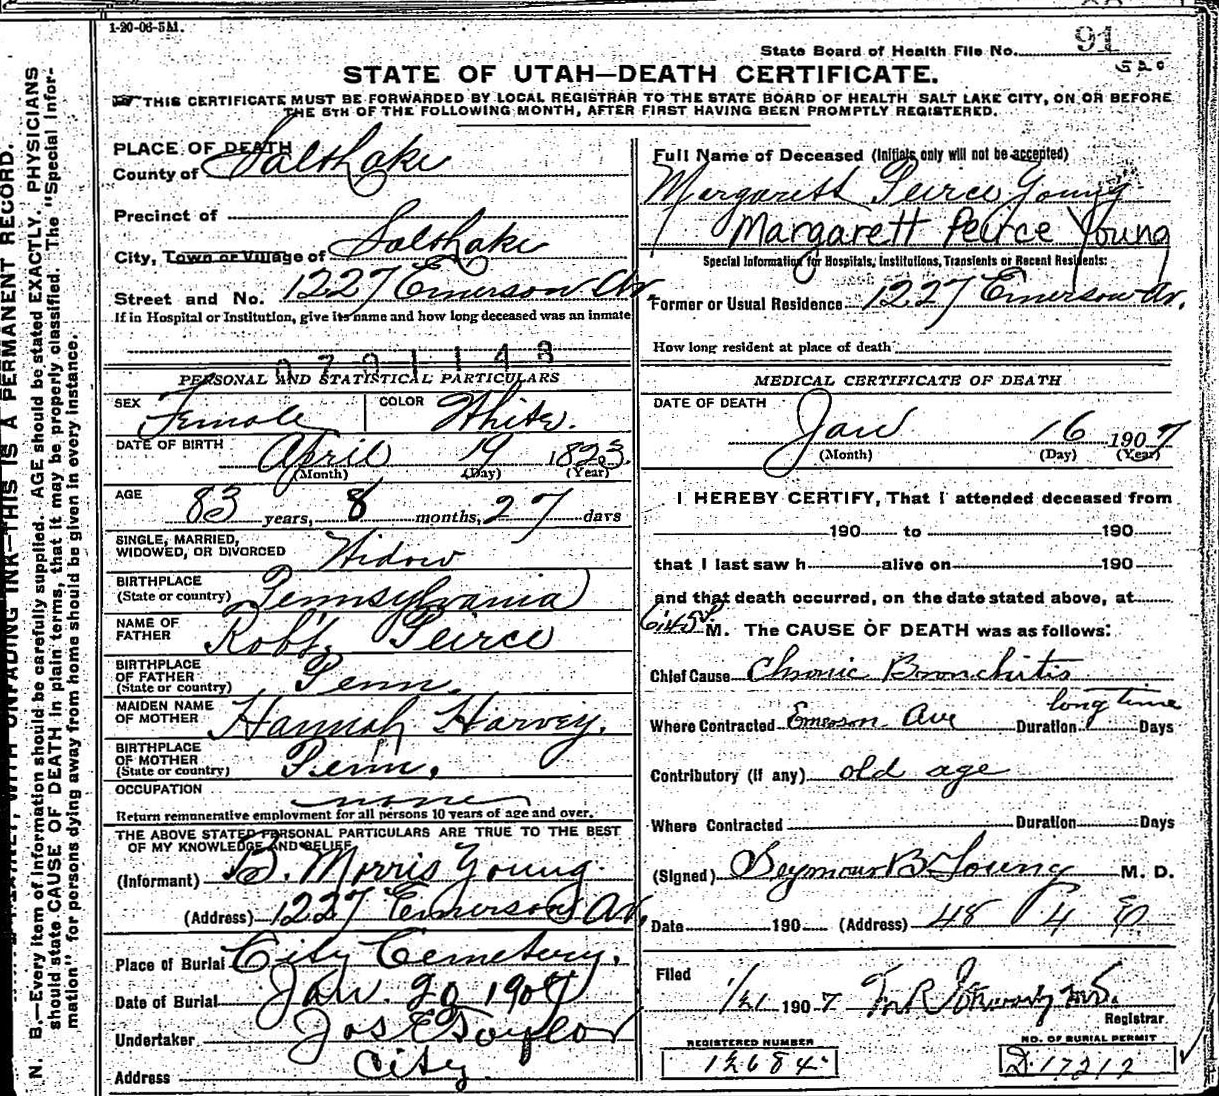 1-20-06-5M.
State Board of Health File No. 91
520
STATE OF UTAH—DEATH CERTIFICATE.
THIS CERTIFICATE MUST BE FORWARDED BY LOCAL REGISTRAR TO THE STATE BOARD OF HEALTH SALT LAKE CITY, ON OR BEFORE
THE 5TH OF THE FOLLOWING MONTH, AFTER FIRST HAVING BEEN PROMPTLY REGISTERED.
PLACE OF DEATH
County of Salt Lake
Precinct of
City, Town or Village of Salt Lake
Street and No. 1227 Emerson Av.
If in Hospital or Institution, give its name and how long deceased was an inmate
0701143
PERSONAL AND STATISTICAL PARTICULARS
SEX Female COLOR White.
DATE OF BIRTH April 19 1823
(Month) (Day) (Year)
AGE 83 years, 8 months, 27 days
SINGLE, MARRIED,
WIDOWED, OR DIVORCED Widow
BIRTHPLACE
(State or country) Pennsylvania
NAME OF
FATHER Robt. Peirce
BIRTHPLACE
OF FATHER
(State or country) Penn.
MAIDEN NAME
OF MOTHER Hannah Harvey.
BIRTHPLACE
OF MOTHER
(State or country) Penn.
OCCUPATION none
Return remunerative employment for all persons 10 years of age and over.
THE ABOVE STATED PERSONAL PARTICULARS ARE TRUE TO THE BEST
OF MY KNOWLEDGE AND BELIEF
(Informant) B. Morris Young
(Address) 1227 Emerson Av.
Place of Burial City Cemetery.
Date of Burial Jan. 20 1907
Undertaker Jos E Taylor
Address City
Full Name of Deceased (Initials only will not be accepted)
Margarett Peirce Young
Margarett Peirce Young
Special Information for Hospitals, Institutions, Transients or Recent Residents:
Former or Usual Residence 1227 Emerson Av.
How long resident at place of death
MEDICAL CERTIFICATE OF DEATH
DATE OF DEATH
Jan 16 1907
(Month) (Day) (Year)
I HEREBY CERTIFY, That I attended deceased from
190 to 190
that I last saw h alive on 190
and that death occurred, on the date stated above, at
6:45 P M. The CAUSE OF DEATH was as follows:
Chief Cause Chronic Bronchitis
Where Contracted Emerson Ave Duration long time Days
Contributory (if any) old age
Where Contracted Duration Days
(Signed) Seymour B Young M. D.
Date 190 (Address) 48 P 4 E
Filed 1/21 1907.
Registrar
REGISTERED NUMBER
12684
NO. OF BURIAL PERMIT
D.17212
N. B.—Every item of information should be carefully supplied. AGE should be stated EXACTLY. PHYSICIANS
should state CAUSE OF DEATH in plain terms, that it may be properly classified. The "Special Infor-
mation" for persons dying away from home should be given in every instance.
WITH UNFADING INK—THIS IS A PERMANENT RECORD.